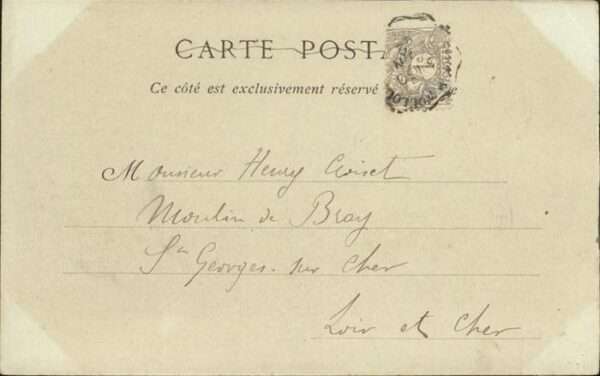 CARTE POSTA
Ce côté est exclusivement réservé
Monsieur Henry Croiset
Moulin de Bray
St Georges sur Cher
Loir et Cher